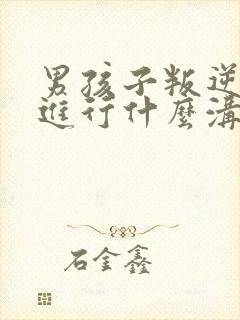 男孩子叛逆
進行什麼溝
石金鑫